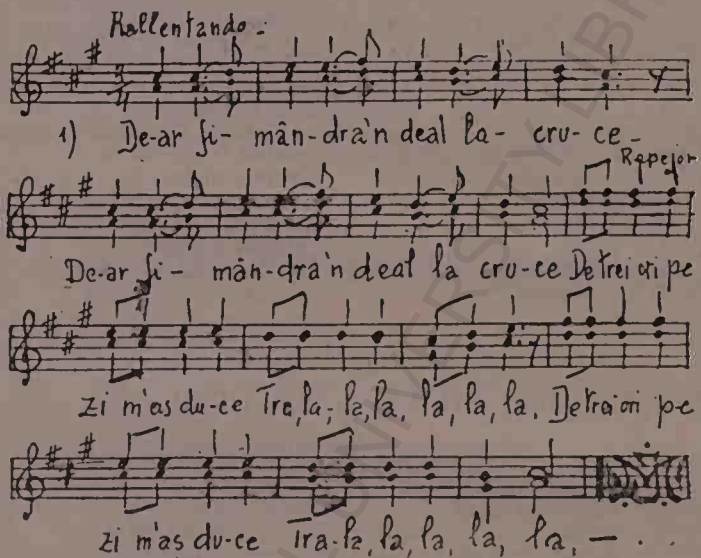 Rallentando.
1) De-ar fi- mân-dra'n deal la- cru-ce-
Repejor
De-ar fi- mân-dra'n deal la cru-ce De trei ori pe
zi m'as du-ce Tra, la, la, la, la, la, la. De trei ori pe
zi m'as du-ce Tra-la, la, la, la, la, — . .